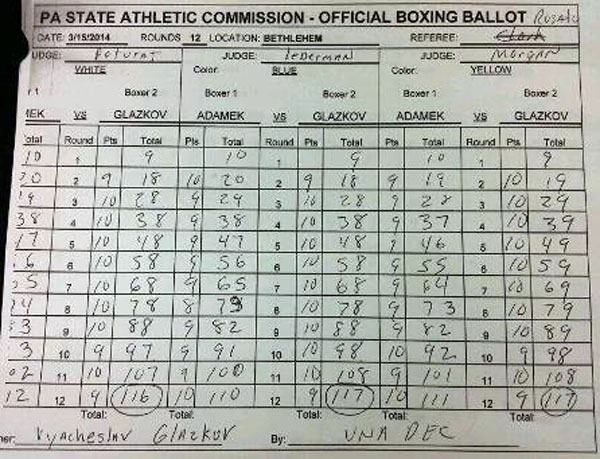 PA STATE ATHLETIC COMMISSION - OFFICIAL BOXING BALLOT
DATE: 3/15/2014 ROUNDS 12 LOCATION: BETHLEHEM REFEREE:
UDGE: Poturaj JUDGE: Lederman JUDGE: Morgan
WHITE Color: BLUE Color: YELLOW
r 1 Boxer 2 Boxer 1 Boxer 2 Boxer 1 Boxer 2
MEK VS GLAZKOV ADAMEK VS GLAZKOV ADAMEK VS GLAZKOV
otal Round Pts Total Pts Total Round Pts Total Pts Total Round Pts Total
10 1 9 10 1 9 10 1 9
20 2 9 18 10 20 2 9 18 9 19 2 10 19
19 3 10 28 9 29 3 10 28 9 28 3 10 29
38 4 10 38 9 38 4 10 38 9 37 4 10 39
17 5 10 48 9 47 5 10 48 9 46 5 10 49
6 6 10 58 9 56 6 10 58 9 55 6 10 59
5 7 10 68 9 65 7 10 68 9 64 7 10 69
4 8 10 78 8 73 8 10 78 9 73 8 10 79
3 9 10 88 9 82 9 10 88 9 82 9 10 89
3 10 9 97 9 91 10 10 98 10 92 10 9 98
02 11 10 107 9 100 11 10 108 9 101 11 10 108
12 12 9 116 10 110 12 9 117 10 111 12 9 117
Total: Total: Total:
ner: Vyacheslav Glazkov By: UNA DEC